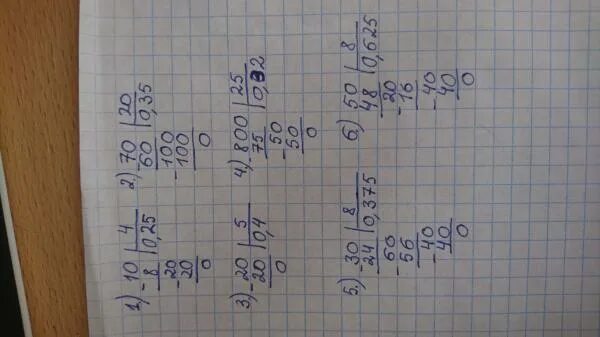 1) -10 | 4
8 | 0,25
-20
20
0
2) -70 | 20
60 | 0,35
-100
100
0
3) -20 | 5
20 | 0,4
0
4) -800 | 25
75 | 0,32
-50
50
0
5.) -30 | 8
24 | 0,375
-60
56
-40
40
0
6.) 50 | 8
48 | 0,625
-20
16
-40
40
0